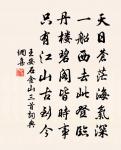 天日蒼茫海氣深
一船西去此登臨
丹樓碧閣皆時事
只有江山古到今
王安石金山三首詞典
網喜